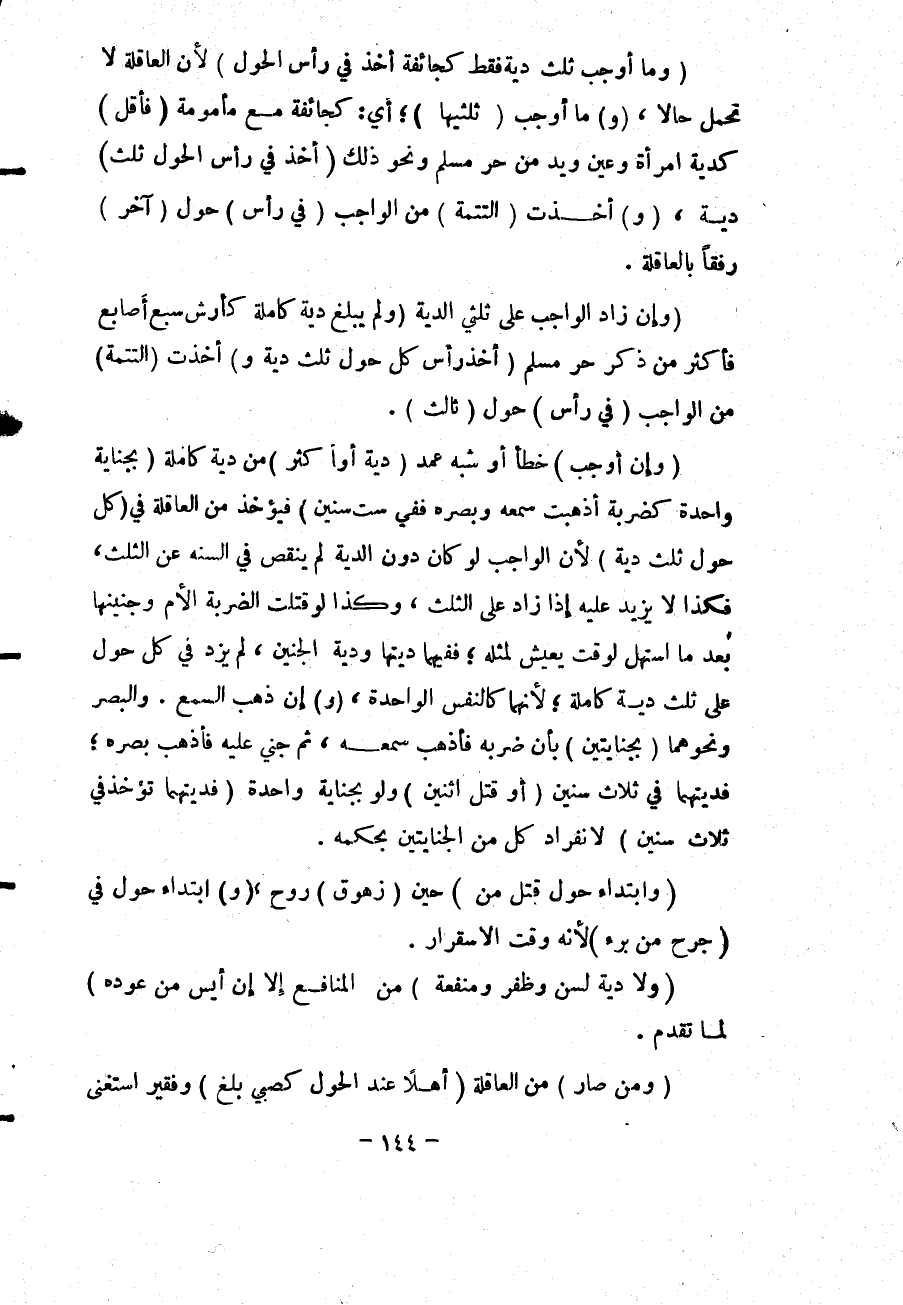 ( وما أوجب ثلث دية فقط كجائفة أخذ في رأس الحول ) لأن العاقلة لا
تحمل حالا ، (و) ما أوجب ( ثلثيها ) ؛ أي: كجائفة مـع مأمومة ( فأقل )
كدية امرأة وعين ويد من حر مسلم ونحو ذلك ( أخذ في رأس الحول ثلث)
ديـة ، ( و ) أخـــذت ( التتمة ) من الواجب ( في رأس ) حول ( آخر )
رفقاً بالعاقلة .
(وإن زاد الواجب على ثلثي الدية (ولم يبلغ دية كاملة كأرش سبع أصابع
فأكثر من ذكر حر مسلم ( أخذ رأس كل حول ثلث دية و) أخذت (التتمة)
من الواجب ( في رأس ) حول ( ثالث ) .
( وإن أوجب ) خطأ أو شبه عمد ( دية أوأ كثر ) من دية كاملة ( بجناية
واحدة كضربة أذهبت سمعه وبصره ففي ست سنين ) فيؤخذ من العاقلة في (كل
حول ثلث دية ) لأن الواجب لو كان دون الدية لم ينقص في السنه عن الثلث،
فكذا لا يزيد عليه إذا زاد على الثلث ، وكذا لو قتلت الضربة الأم وجنينها
بُعد ما استهل لوقت يعيش لمثله ؛ ففيها ديتها ودية الجنين ، لم يزد في كل حول
على ثلث ديـة كاملة ؛ لأنها كالنفس الواحدة ، (و) إن ذهب السمع . والبصر
ونحوهما ( بجنايتين ) بأن ضربه فأذهب سمعـــه ، ثم جني عليه فأذهب بصره ؛
فديتهما في ثلاث سنين ( أو قتل اثنين ) ولو بجناية واحدة ( فديتهما تؤخذ في
ثلاث سنين ) لانفراد كل من الجنايتين بحكمه .
( وابتداء حول قتل من ) حين ( زهوق ) روح ،(و) ابتداء حول في
( جرح من برء )لأنه وقت الاسقرار .
( ولا دية لسن وظفر ومنفعة ) من المنافـع إلا إن أيس من عوده )
لمـا تقدم .
( ومن صار ) من العاقلة ( أهـلًا عند الحول كصبي بلغ ) وفقير استغنى
- ١٤٤ -